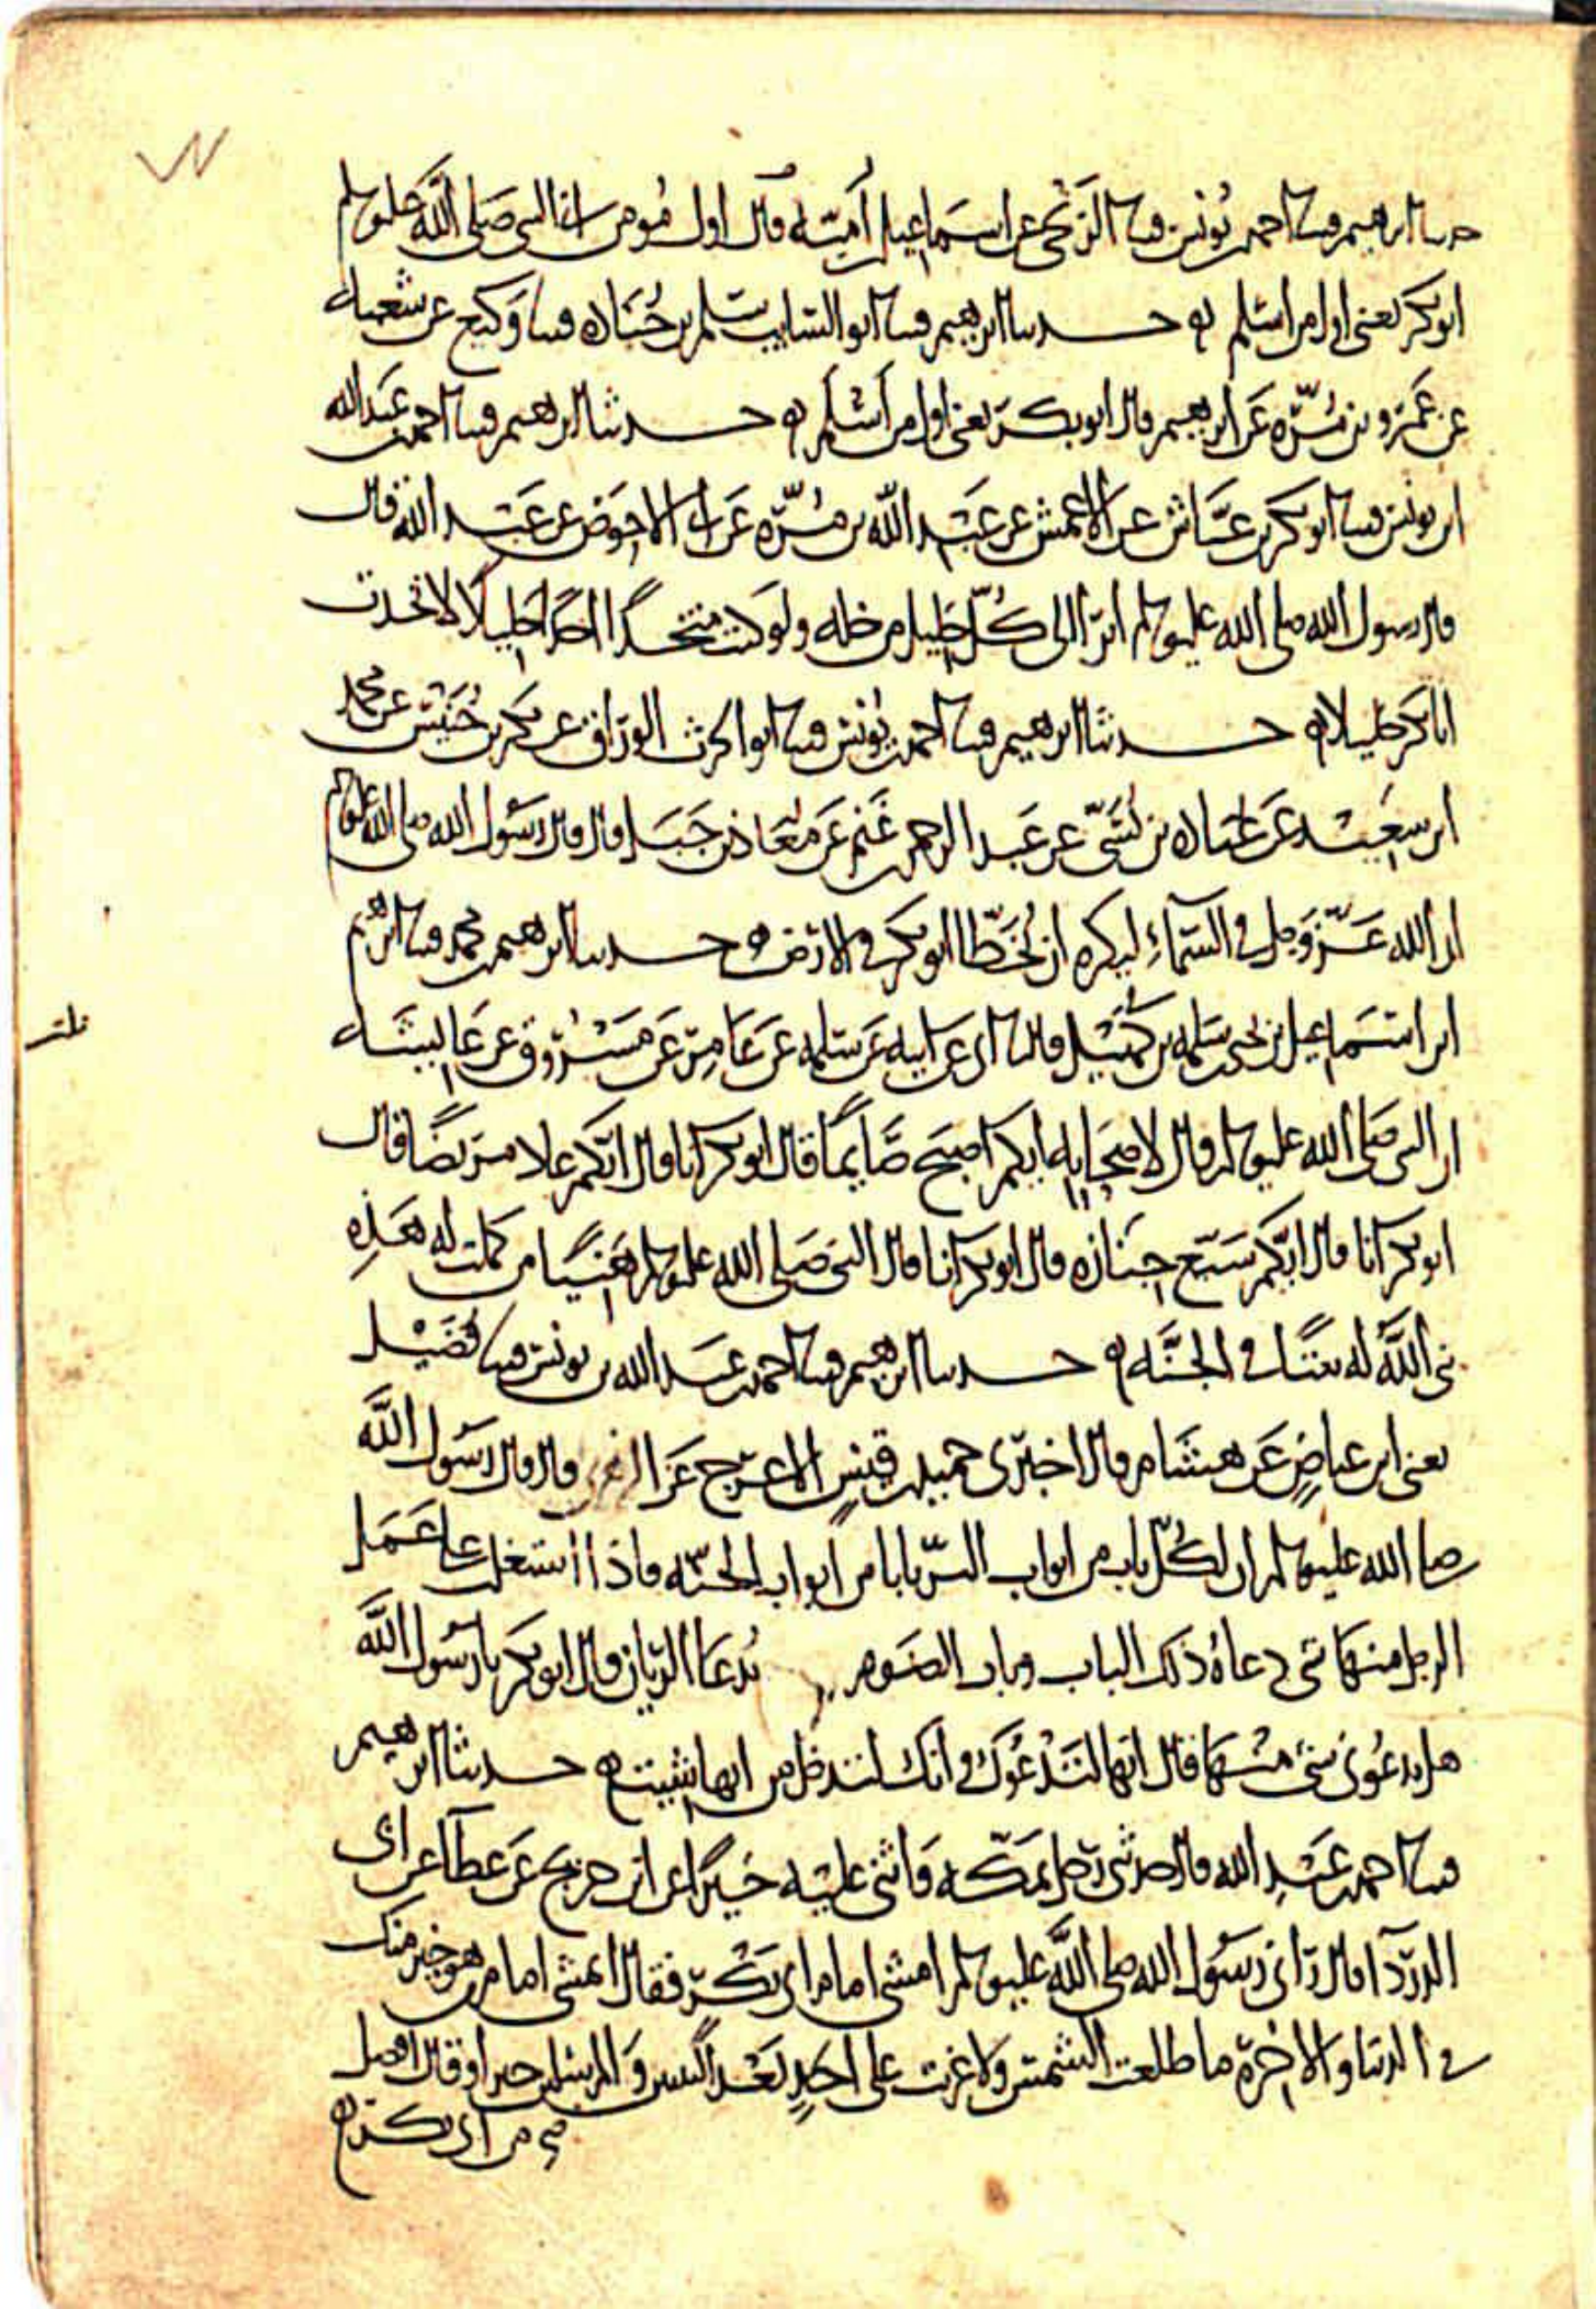 حدثنا ابرهيم قثنا احمد بن يونس قثنا الزنجي عن اسماعيل بن امية قال اول مومن النبي صلى الله عليه وسلم
ابو بكر يعني اول من اسلم حدثنا ابرهيم قثنا ابو السايب سلم بن جنادة قثنا وكيع عن شعبة
عن عمرو بن مرة عن ابرهيم قال ابو بكر يعني اول من اسلم حدثنا ابرهيم قثنا احمد بن عبد الله
ابن يونس قثنا ابو بكر بن عياش عن الاعمش عن عبد الله بن مرة عن ابي الاحوص عن عبد الله قال
قال رسول الله صلى الله عليه وسلم ابرا الى كل خليل من خله ولو كنت متخذا احدا خليلا لاتخذت
ابا بكر خليلا حدثنا ابرهيم قثنا احمد بن يونس قثنا ابو الحرث الوراق عن بكر بن خنيس عن محمد
ابن سعيد عن عبادة بن نسي عن عبد الرحمن بن غنم عن معاذ بن جبل قال قال رسول الله صلى الله عليه وسلم
ان الله عز وجل في السماء ليكره ان يخطا ابو بكر في الارض حدثنا ابرهيم بن محمد قثنا ابرهيم
ابن اسماعيل بن يحيى بن سلمة بن كهيل قال حدثنا ابي عن ابيه عن سلمة عن عامر عن مسروق عن عايشة
ان النبي صلى الله عليه وسلم قال لاصحابه ايكم اصبح صايما قال ابو بكر انا قال ايكم عاد مريضا قال
ابو بكر انا قال ايكم شيع جنازة قال ابو بكر انا قال النبي صلى الله عليه وسلم هنيا من كملت له هذه
بنى الله له بيتا في الجنة حدثنا ابرهيم قثنا احمد بن عبد الله بن يونس قثنا فضيل
يعني ابن عياض عن هشام قال اخبرني حميد بن قيس الاعرج عن الزهري قال قال رسول الله
صلى الله عليه وسلم ان لكل باب من ابواب البر بابا من ابواب الجنة فاذا استغلب على عمل
الرجل منها شي دعاه ذلك الباب وباب الصوم يدعا الريان قال ابو بكر يا رسول الله
هل يدعوني شي منها قال انها لتدعوك وانك لتدخل من ايها شيت حدثنا ابرهيم
قثنا احمد بن عبد الله قال حدثني رجل بمكة واثنى عليه خيرا عن ابن جريج عن عطا عن ابي
الدردا قال راني رسول الله صلى الله عليه وسلم امشي امام ابي بكر فقال اتمشي امام من هو خير منك
في الدنيا والاخرة ما طلعت الشمس ولا غربت على احد بعد النبيين والمرسلين خير او قال افضل
من ابي بكر